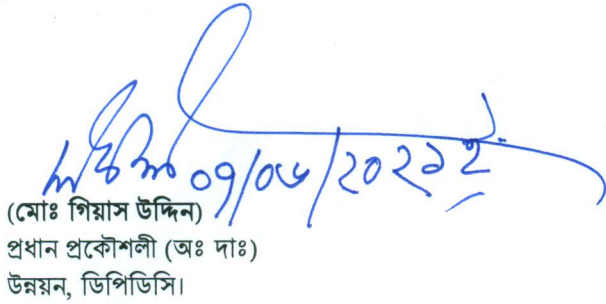 ০৭/০৬/২০২১ইং
(মোঃ গিয়াস উদ্দিন)
প্রধান প্রকৌশলী (অঃ দাঃ)
উন্নয়ন, ডিপিডিসি।